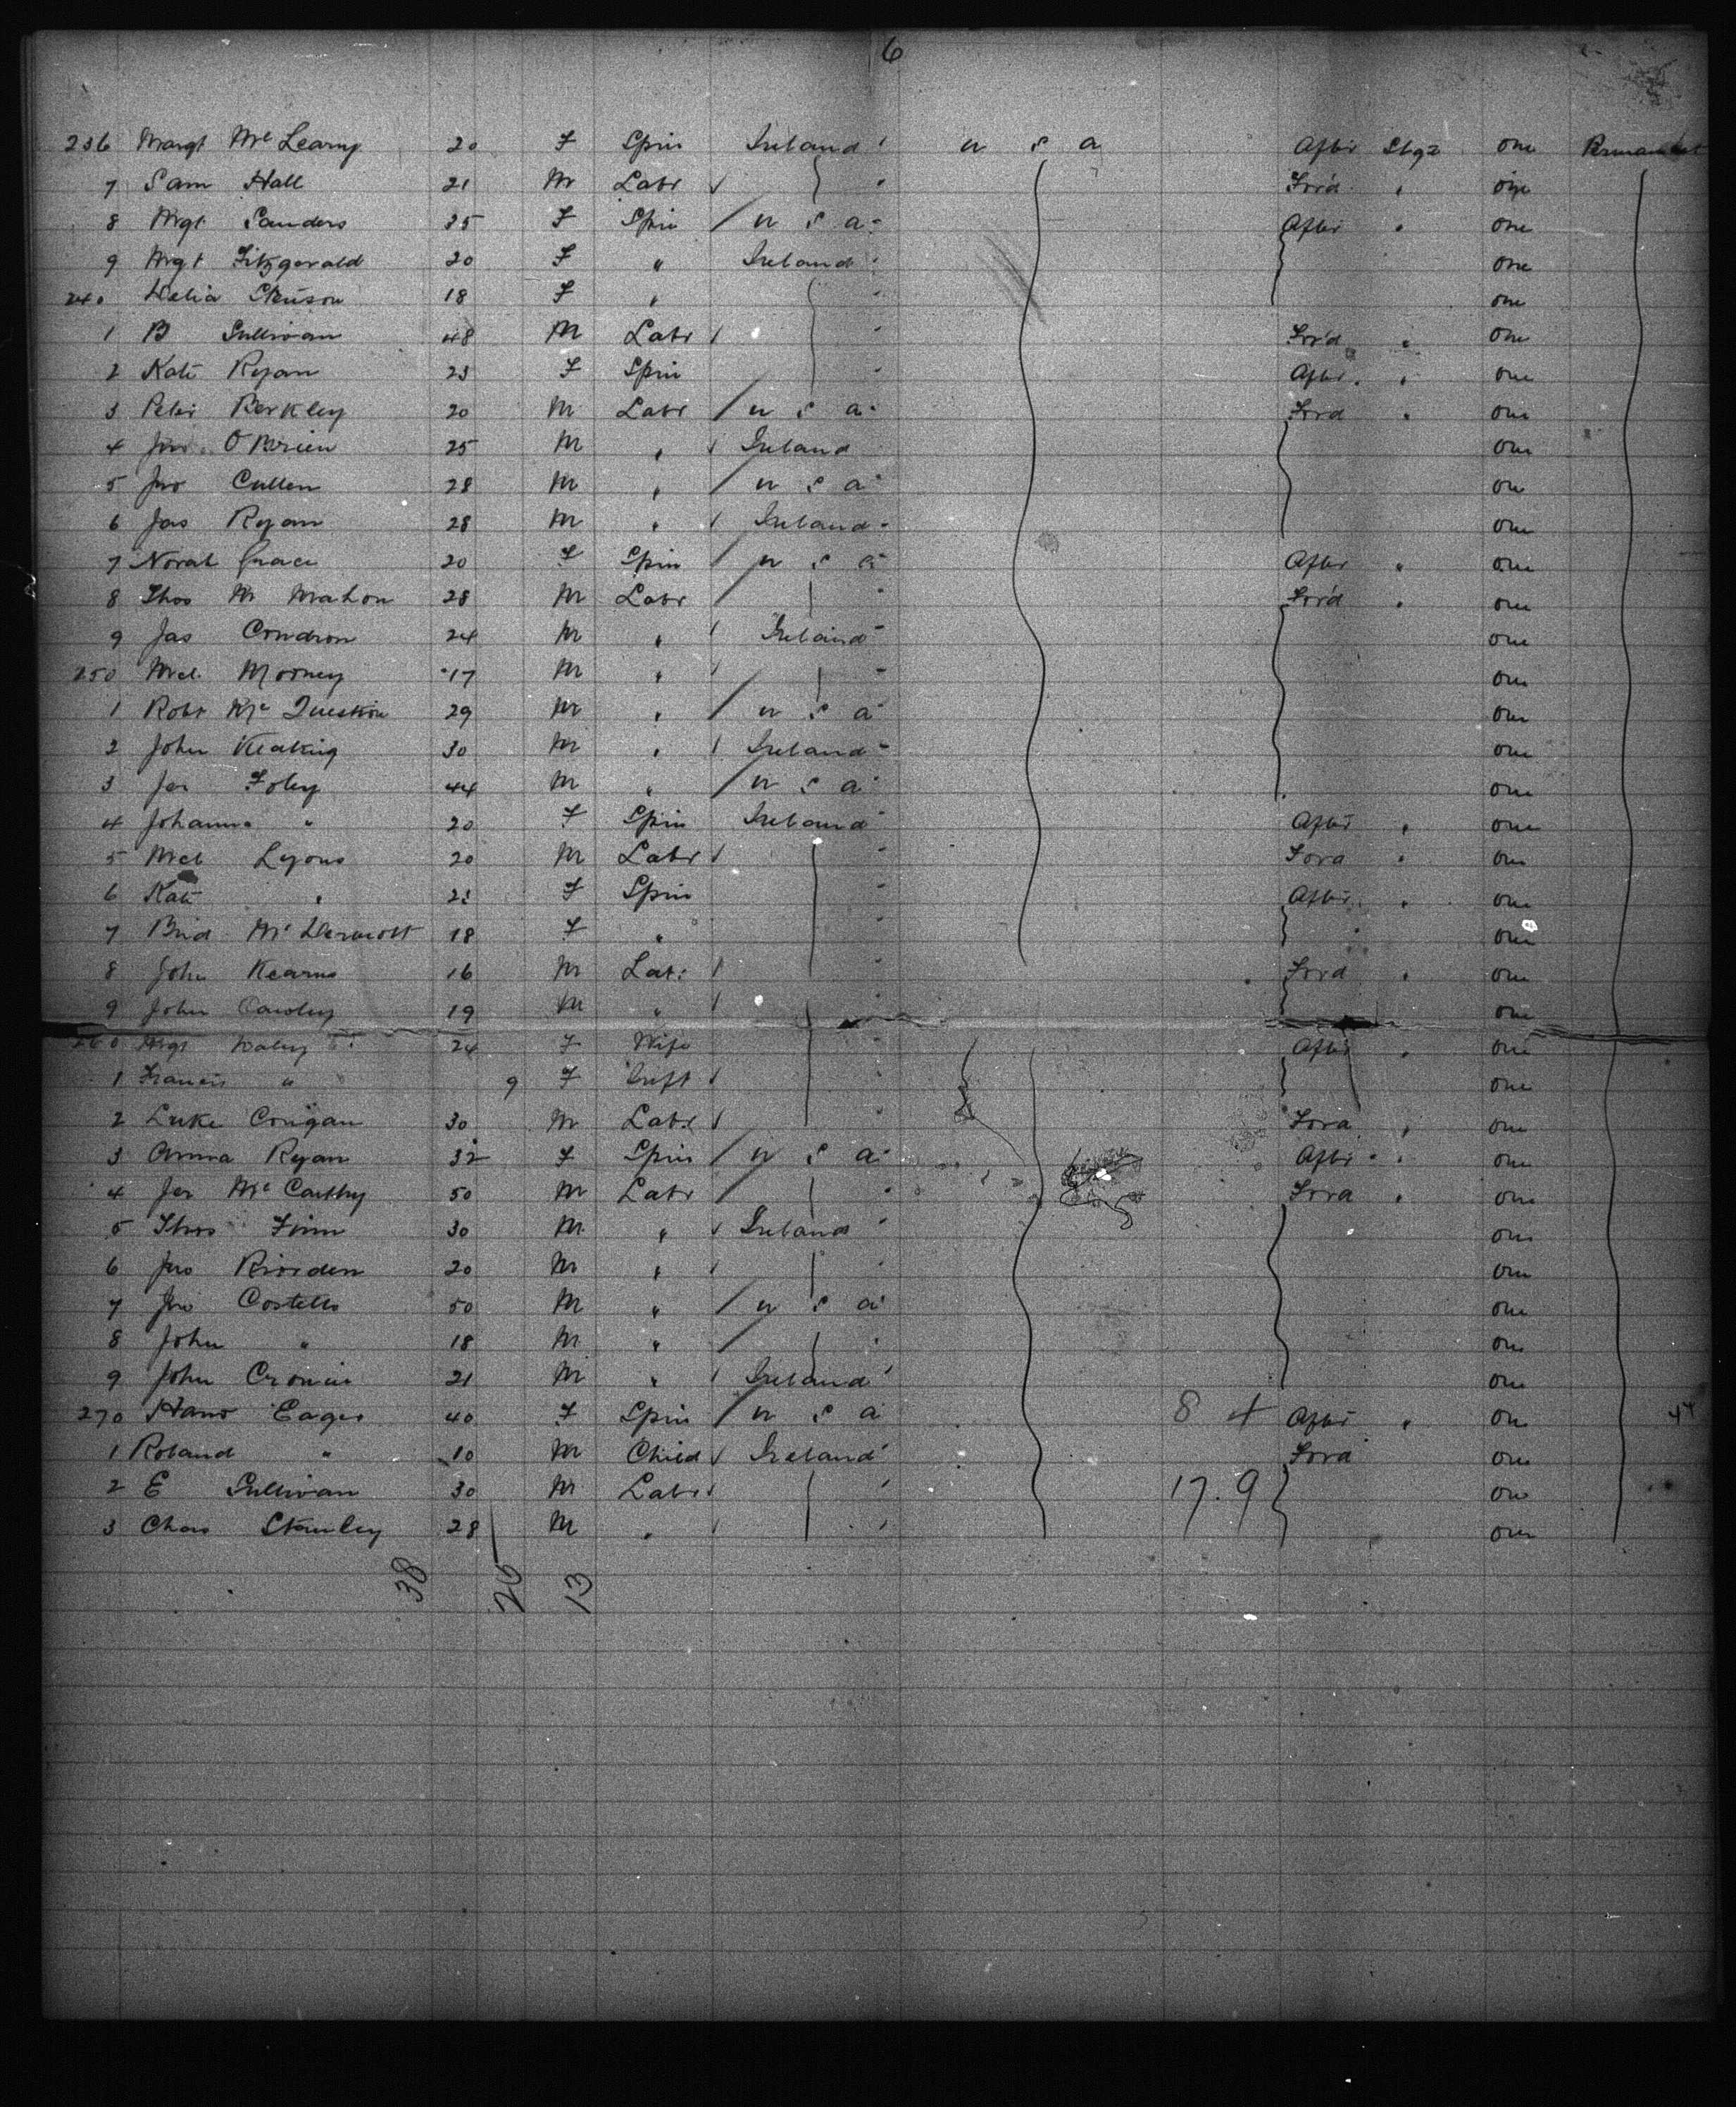 6
236 Margt Mc Learny 20 F Spin Ireland U S A After Stge one Permanent
7 Sam Hall 21 M Labr " For'd " one
8 Mgt Sanders 35 F Spin U S A After " one
9 Mgt Fitzgerald 20 F " Ireland one
240 Delia 18 F " one
1 B Sullivan 48 M Labr For'd " one
2 Kate Ryan 23 F Spin After " one
3 Peter Berkley 20 M Labr U S A Ford " one
4 Jno O'Brien 25 M " Ireland one
5 Jno Cullen 28 M " U S A one
6 Jas Ryan 28 M " Ireland one
7 Norah Grace 20 F Spin U S A After " one
8 Thos Mc Mahon 28 M Labr For'd " one
9 Jas Condron 24 M " Ireland one
250 Mcl Mooney 17 M " one
1 Robt Mc Question 29 M " U S A one
2 John Keating 30 M " Ireland one
3 Jer Foley 44 M " U S A one
4 Johanna " 20 F Spin Ireland After " one
5 Mcl Lyons 20 M Labr Ford " one
6 Kate " F Spin After " one
7 Brid Mc Dermott 18 F " one
8 John Kearns 16 M Labr Ford " one
9 John Cawley 19 M " one
260 Mgt Daley 24 F Wife After " one
1 Francis " 9 F Inft one
2 Luke Corrigan 30 M Labr Ford " one
3 Anna Ryan 32 F Spin U S A After " one
4 Jer Mc Carthy 50 M Labr Ford " one
5 Thos Finn 30 M " Ireland one
6 Jno Riorden 20 M " one
7 Jno Costello 50 M " U S A one
8 John " 18 M " one
9 John Cronin 21 M " Ireland one
270 Hano Eager 40 F Spin U S A 8 4 After " one 44
1 Roland " 10 M Child Ireland Ford one
2 E Sullivan 30 M Labr 17.9 one
3 Chas Stanley 28 M " one
38 26 13